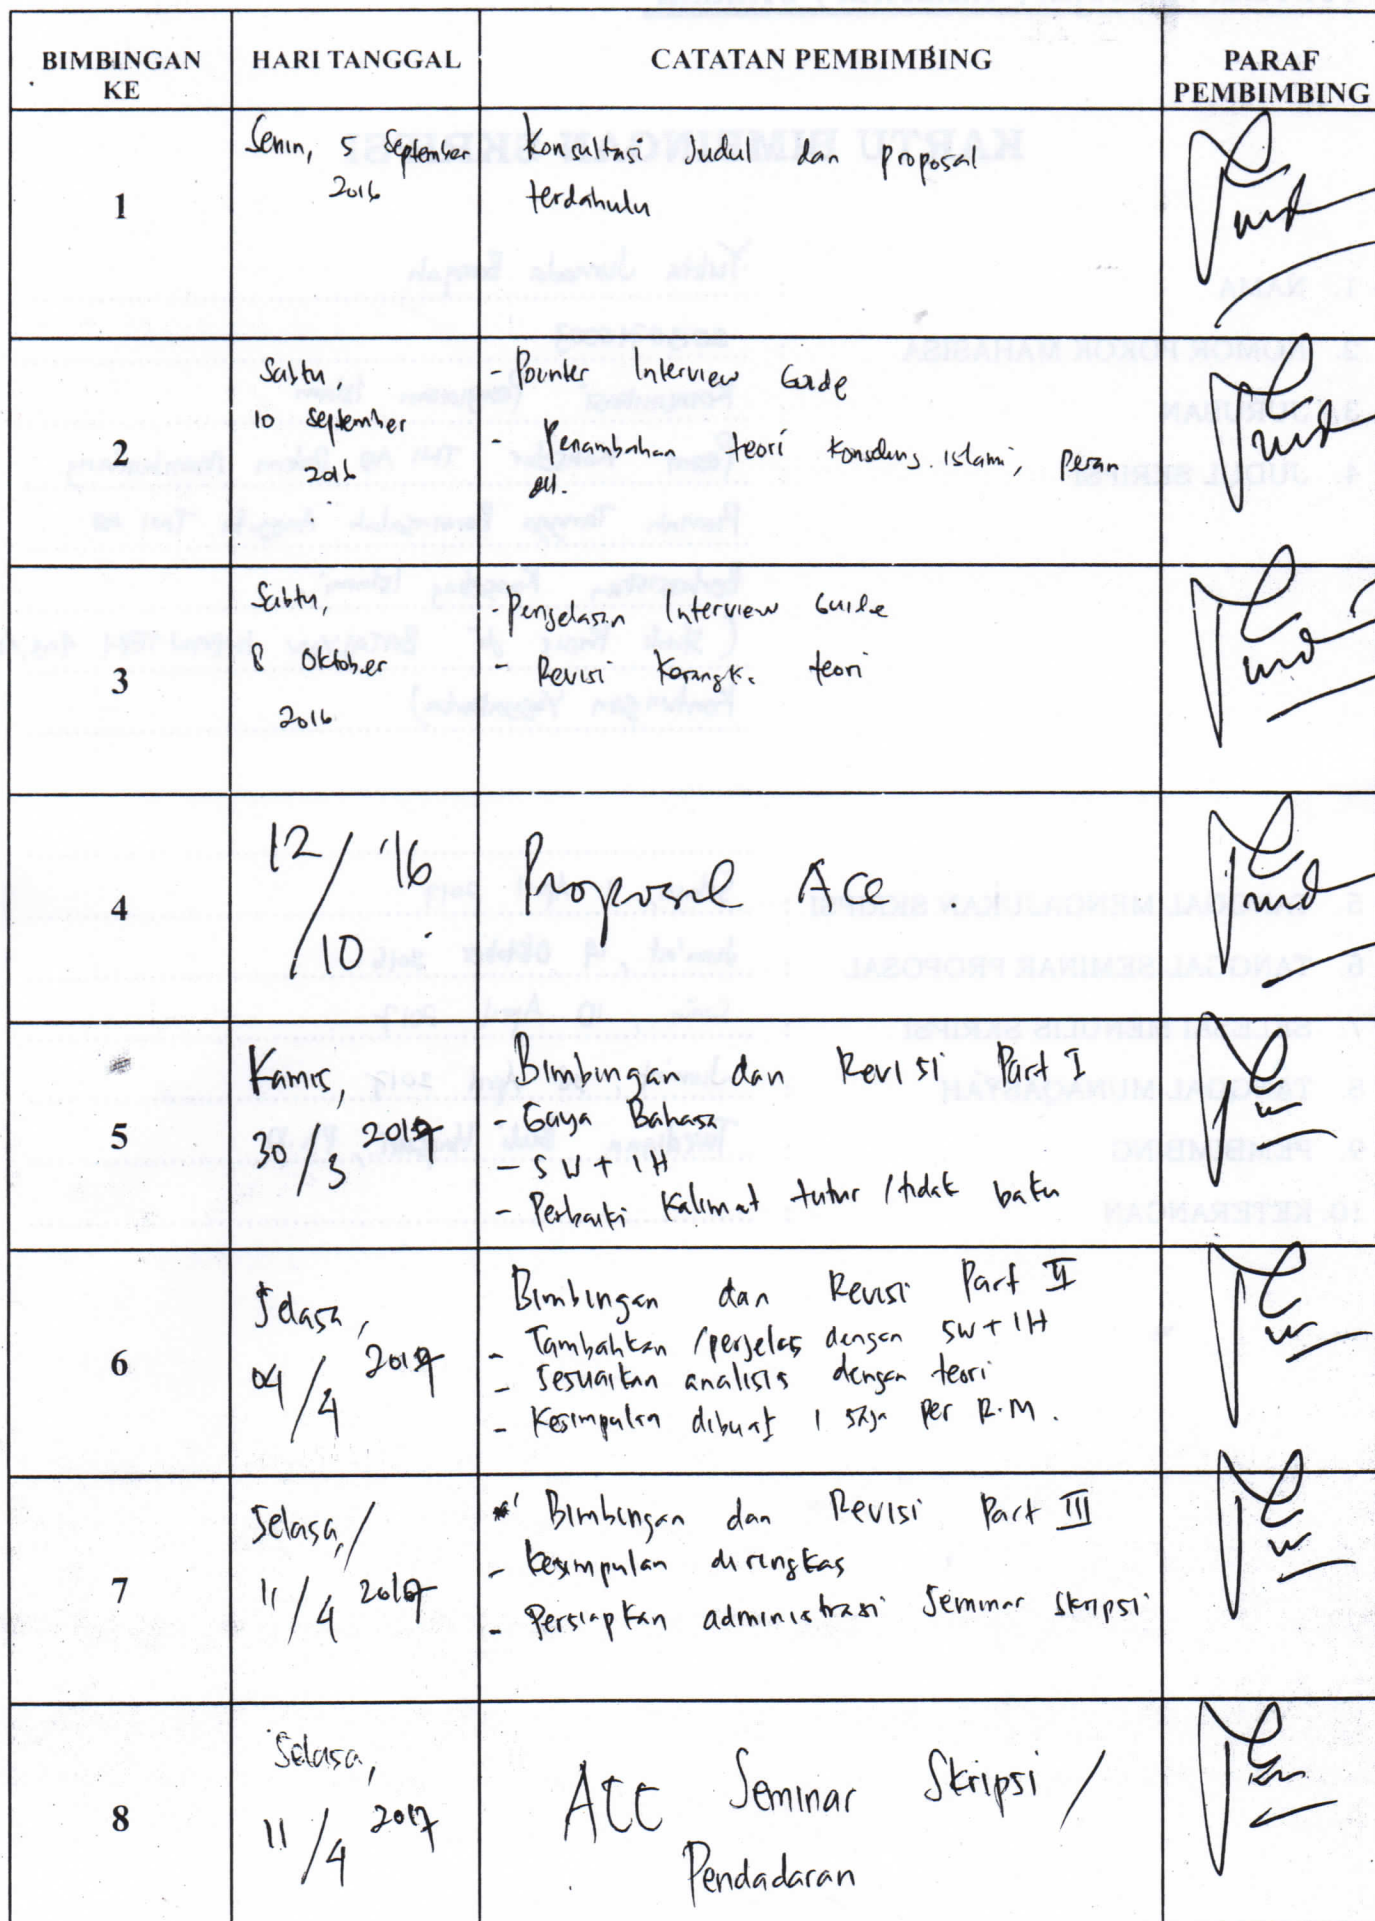 BIMBINGAN KE
HARI TANGGAL
CATATAN PEMBIMBING
PARAF PEMBIMBING
1
Senin, 5 September
2016
Konsultasi Judul dan proposal
terdahulu
2
Sabtu,
10 September
2016
- Pointer Interview Guide
- Penambahan teori Konseling islami, peran
dll.
3
Sabtu,
8 Oktober
2016
- Penjelasan Interview Guide
- Revisi Kerangka teori
4
12/10 '16
Proposal Acc
5
Kamis,
30/3 2017
Bimbingan dan Revisi Part I
- Gaya Bahasa
- 5W + 1H
- Perbaiki Kalimat tutur / tidak baku
6
Selasa,
04/4 2017
Bimbingan dan Revisi Part II
- Tambahkan / perjelas dengan 5W + 1H
- Sesuaikan analisis dengan teori
- Kesimpulan dibuat 1 saja per R.M.
7
Selasa,
11/4 2017
Bimbingan dan Revisi Part III
- Kesimpulan diringkas
- Persiapkan administrasi Seminar Skripsi
8
Selasa,
11/4 2017
ACC Seminar Skripsi /
Pendadaran